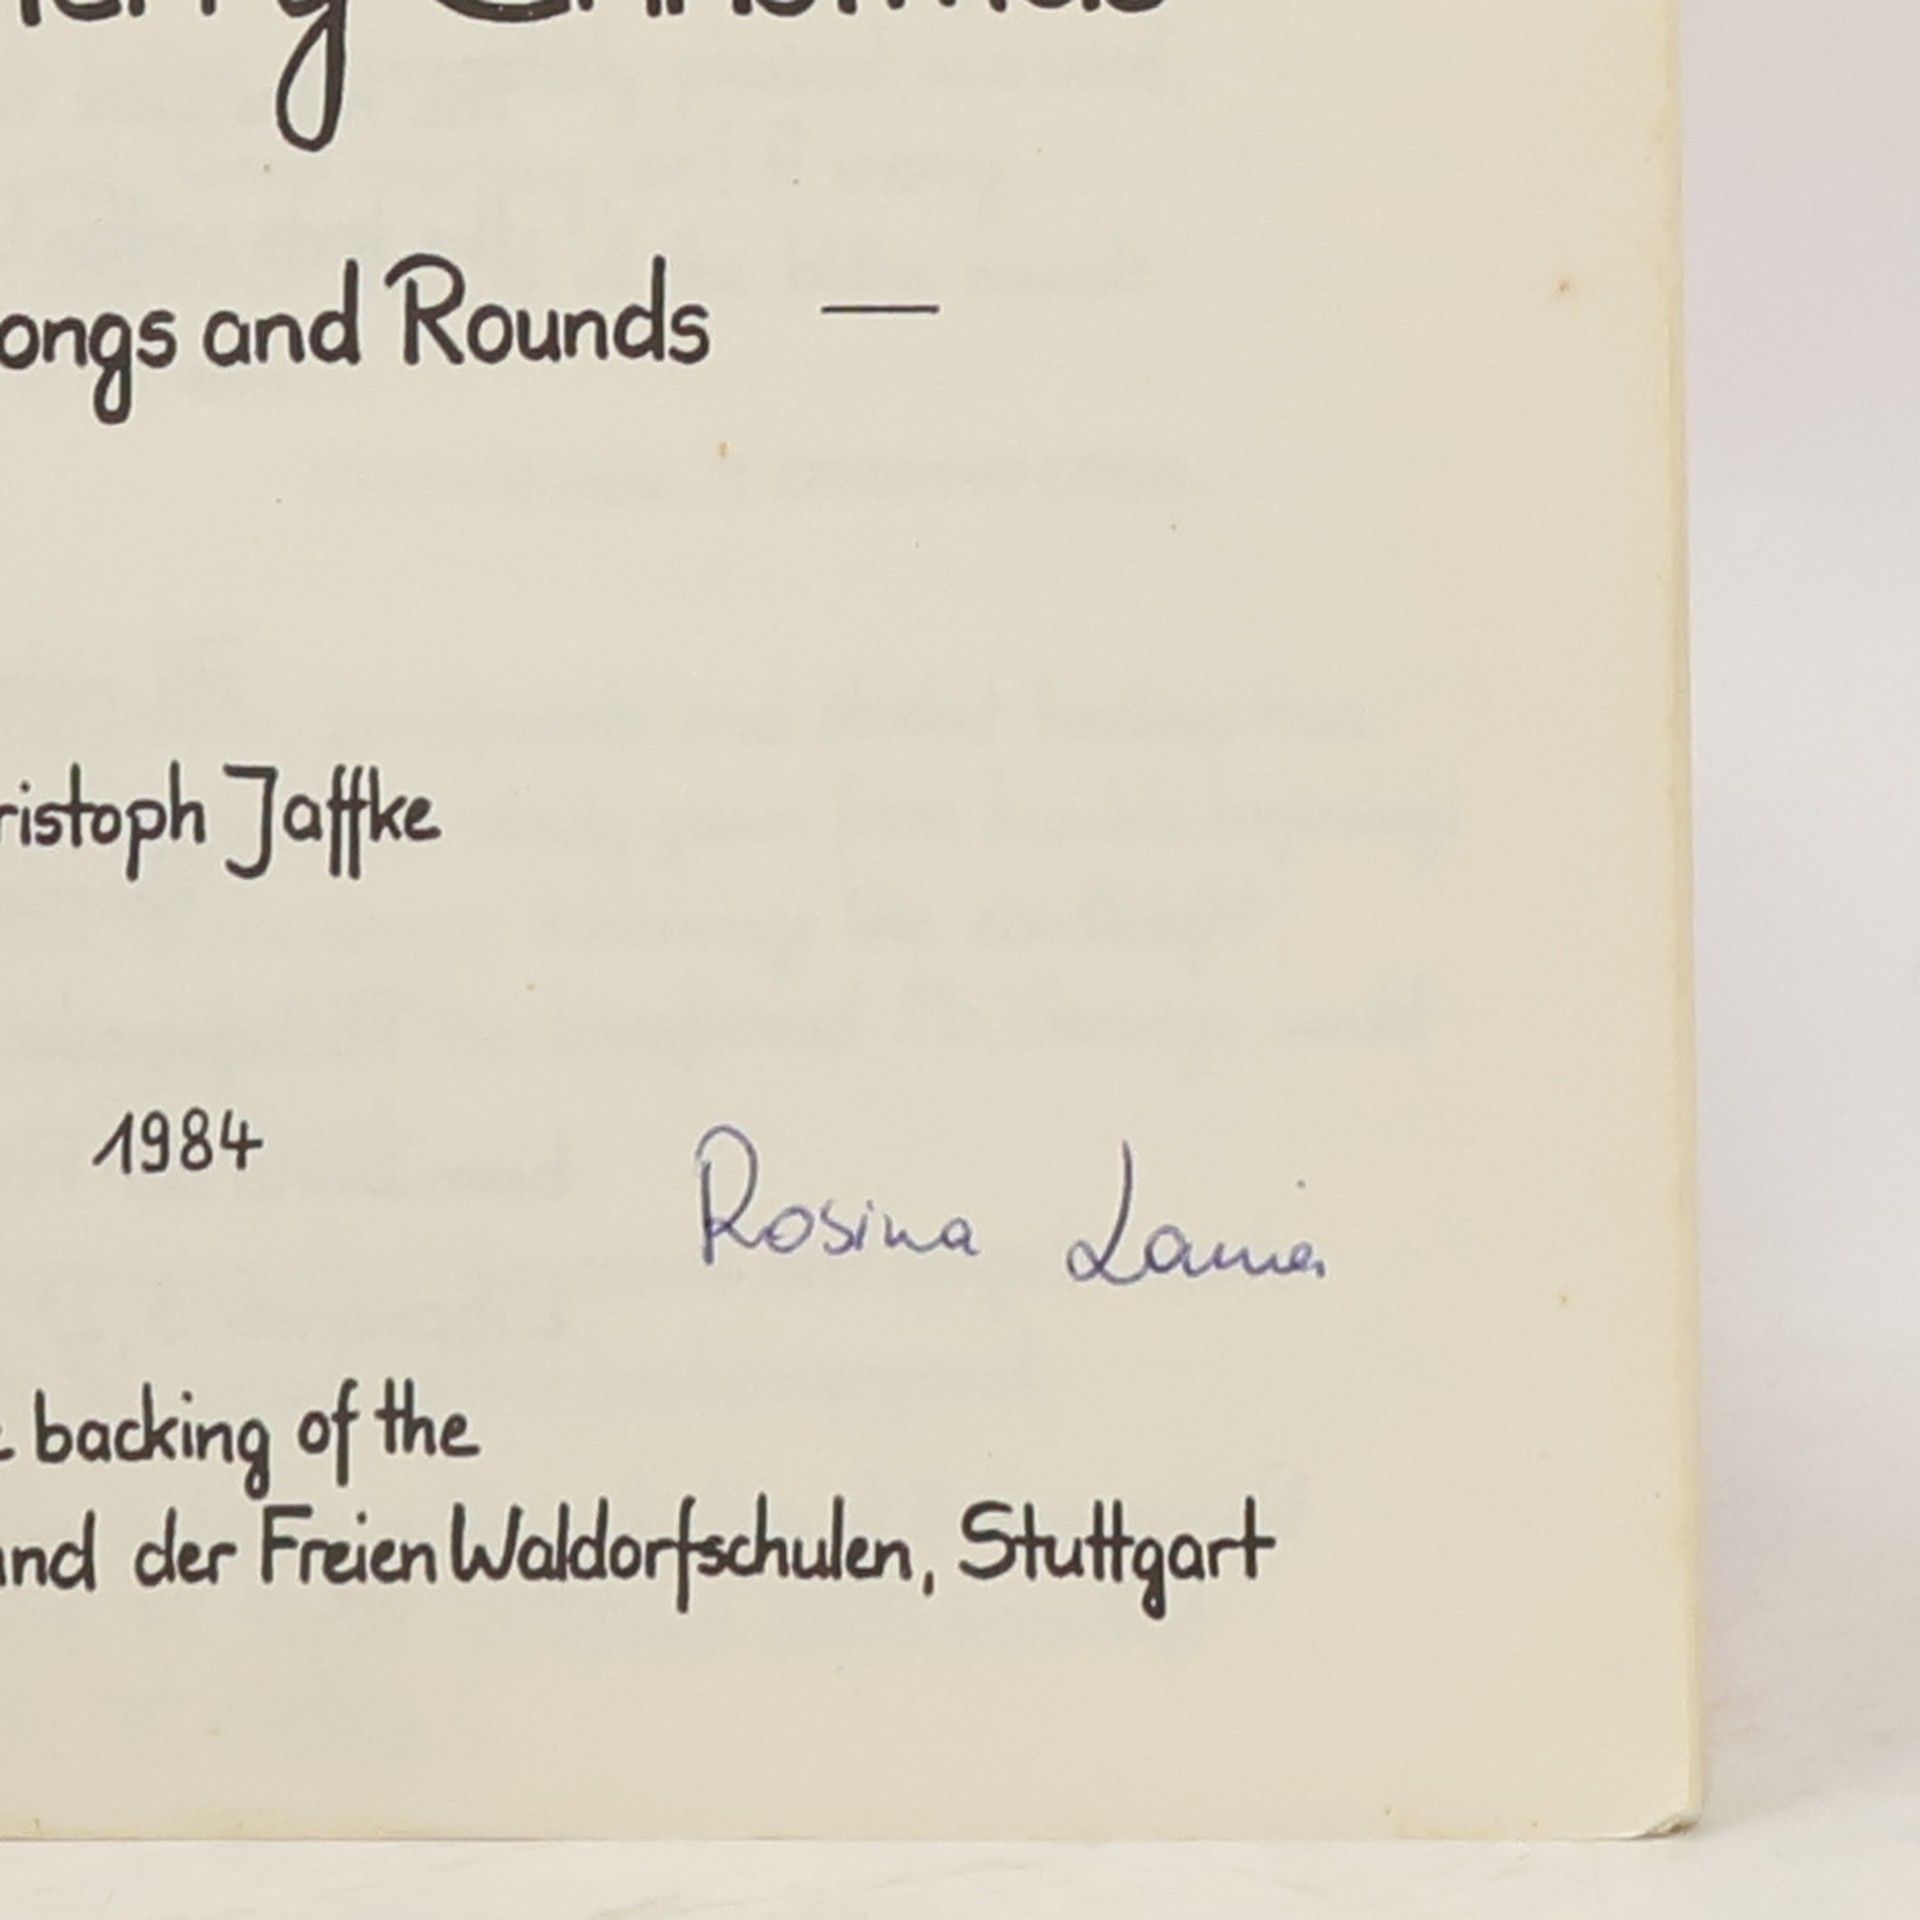 Merry Christmas
ongs and Rounds —
ristoph Jaffke
1984
Rosina
backing of the
and der Freien Waldorfschulen, Stuttgart